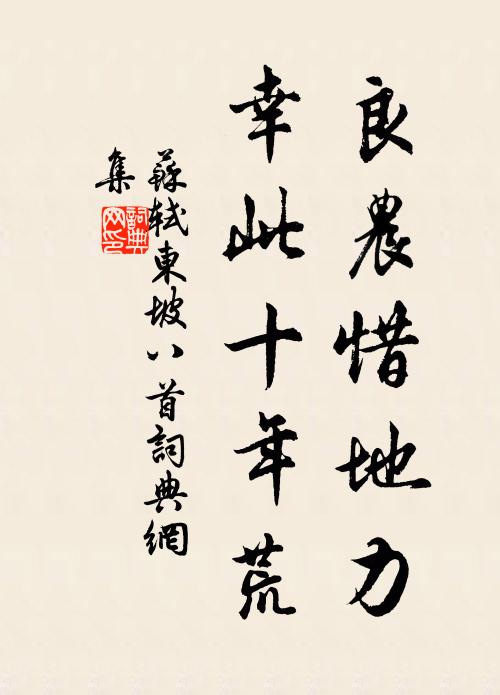 良農惜地力
幸此十年荒
蘇軾東坡八首詞典網
集
詞典
网印